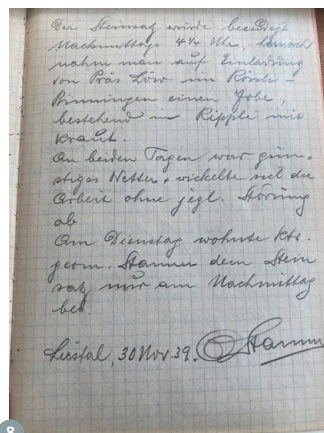 Der Steinsatz wurde beendigt
Nachmittags 4¼ Uhr. Hernach
nahm man auf Einladung
von Präs Löw im Rössli-
Binningen einen Jobe,
bestehend in Rippli mit
Kraut.
An beiden Tagen war gün-
stiges Wetter & wickelte sich die
Arbeit ohne jegl. Störung
ab
Am Dienstag wohnte Kts.
geom. Stamm dem Stein
satz nur am Nachmittag
bei.
Liestal, 30 Nov 39. Stamm
8